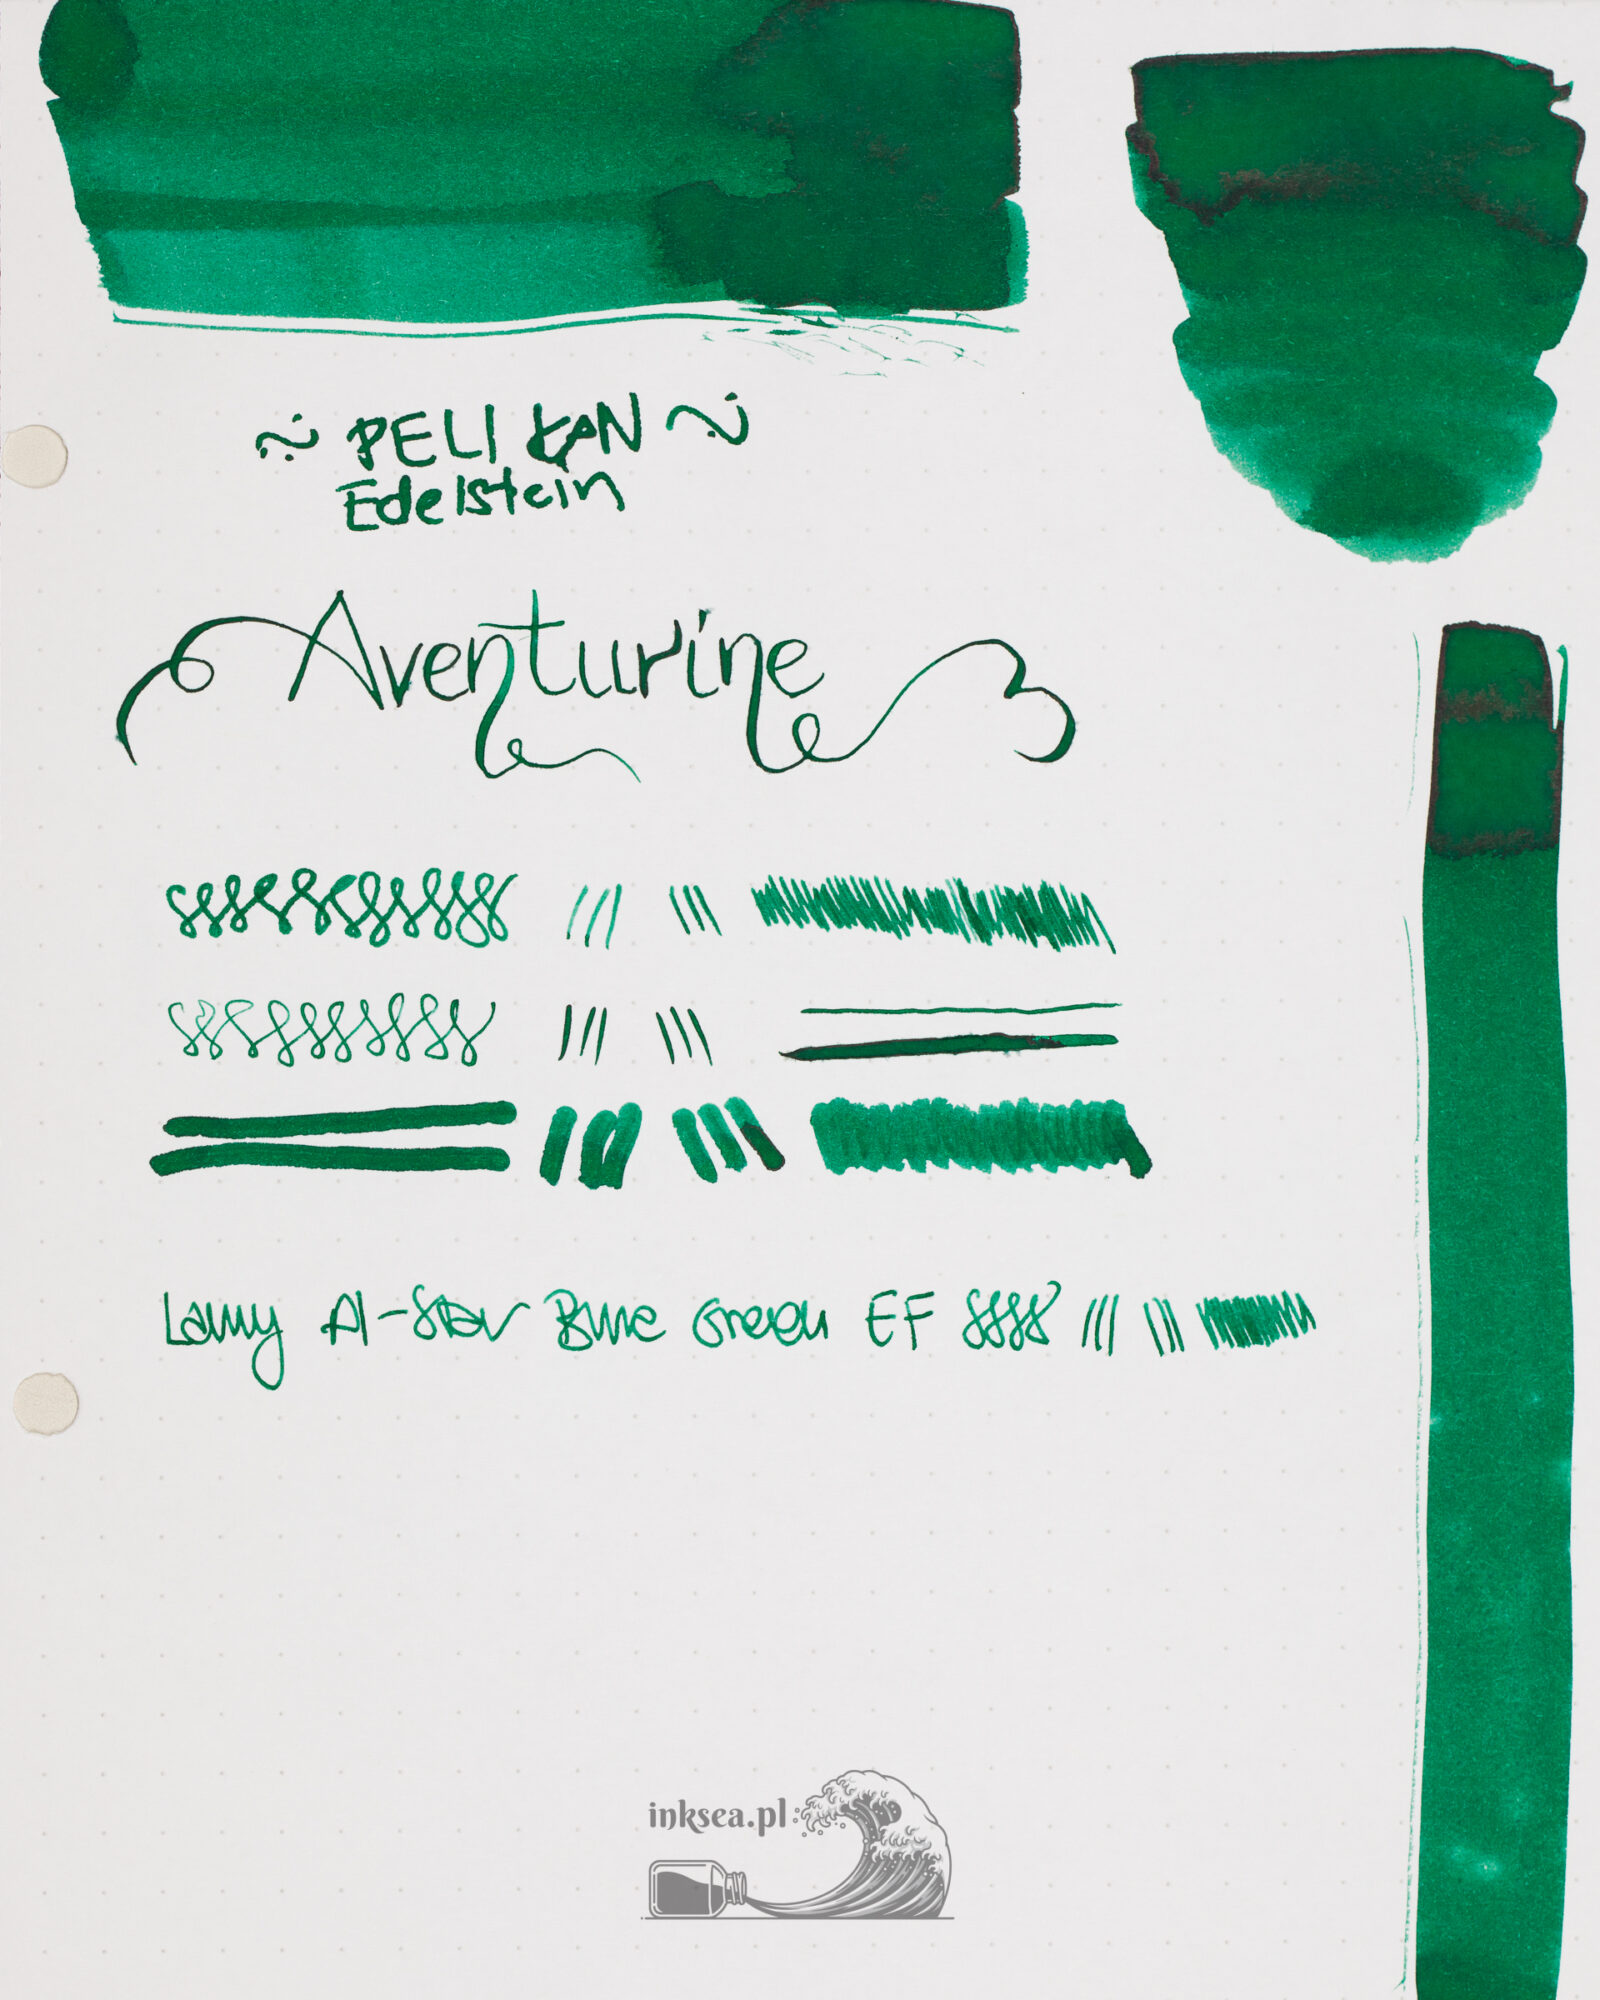 PELIKAN
Edelstein
Aventurine
Lamy Al-Star Blue Green EF
inksea.pl